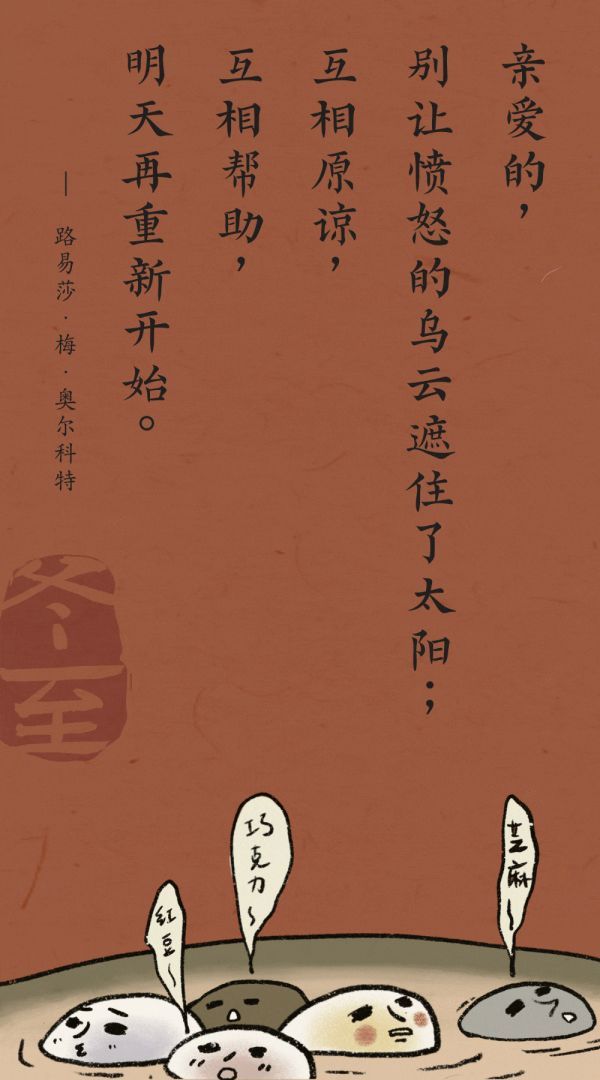 亲爱的，
别让愤怒的乌云遮住了太阳；
互相原谅，
互相帮助，
明天再重新开始。
— 路易莎·梅·奥尔科特
冬至
红豆~
巧克力~
芝麻~